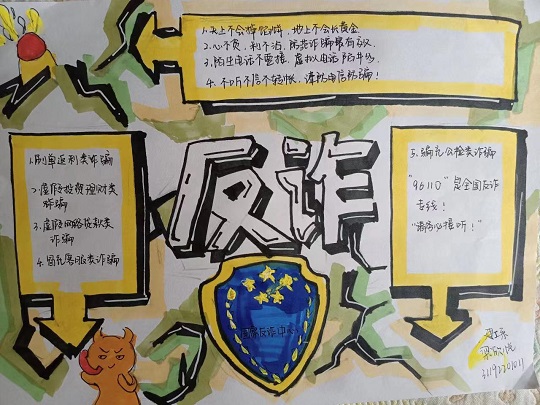 1.天上不会掉馅饼,地上不会长黄金.
2.心不贪,利不沾,防范诈骗最有效.
3.陌生电话不要接,虚拟电话陷阱多.
4.不听不信不转账,谨防电信诈骗!
1.刷单返利类诈骗
2.虚假投资理财类
诈骗
3.虚假网络贷款类
诈骗
4.冒充客服类诈骗
反诈
5.冒充公检类诈骗
"96110"是全国反诈
专线!
"请务必接听!"
国家反诈中心